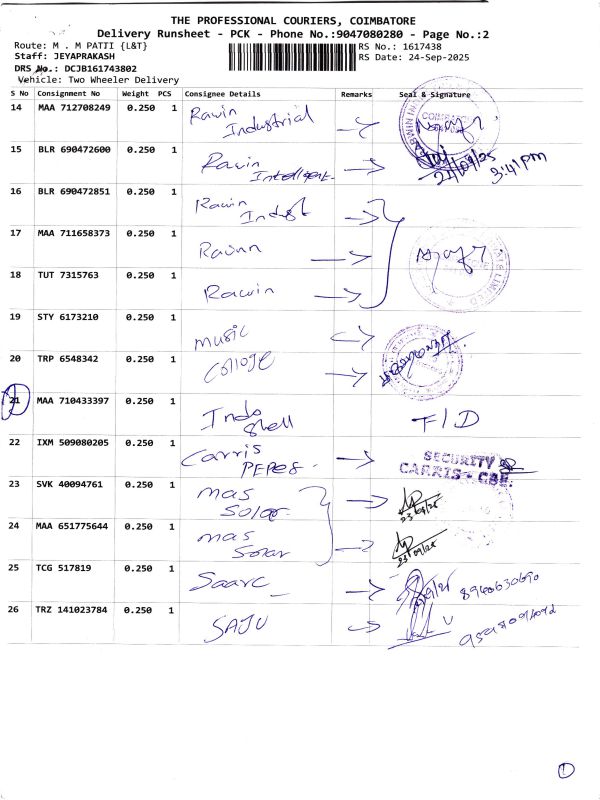 THE PROFESSIONAL COURIERS, COIMBATORE
Delivery Runsheet - PCK - Phone No.:9047080280 - Page No.:2
Route: M . M PATTI {L&T}
RS No.: 1617438
Staff: JEYAPRAKASH
RS Date: 24-Sep-2025
DRS No.: DCJB161743802
Vehicle: Two Wheeler Delivery
S No Consignment No Weight PCS Consignee Details Remarks Seal & Signature
14 MAA 712708249 0.250 1 Rawin
Industrial
15 BLR 690472600 0.250 1 Rawin
24/09/25
3:41 PM
16 BLR 690472851 0.250 1 Rawin
Indust
17 MAA 711658373 0.250 1 Rawin
18 TUT 7315763 0.250 1 Rawin
19 STY 6173210 0.250 1 music
20 TRP 6548342 0.250 1 College
21 MAA 710433397 0.250 1 Indo
Shell
F/D
22 IXM 509080205 0.250 1 Carris
PEPES
SECURITY
CARRIS - CBE.
23 SVK 40094761 0.250 1 mas
Solar
23/09/25
24 MAA 651775644 0.250 1 mas
Solar
25 TCG 517819 0.250 1 Saarc
8940630690
26 TRZ 141023784 0.250 1 SAJU
1